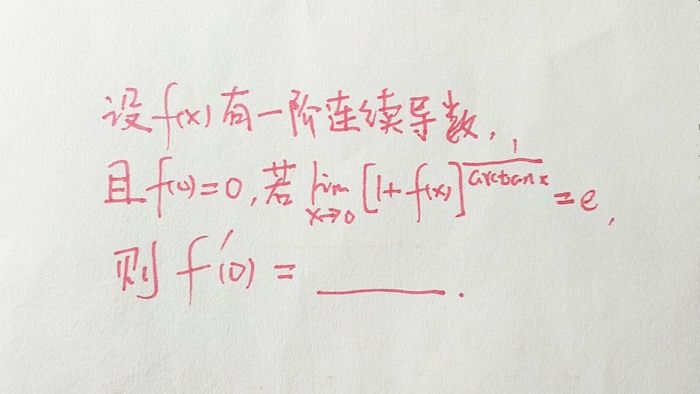 设f(x)有一阶连续导数,
且f(0)=0,若 lim_{x→0} [1+f(x)]^{\frac{1}{arctan x}} = e,
则 f'(0) = ______.